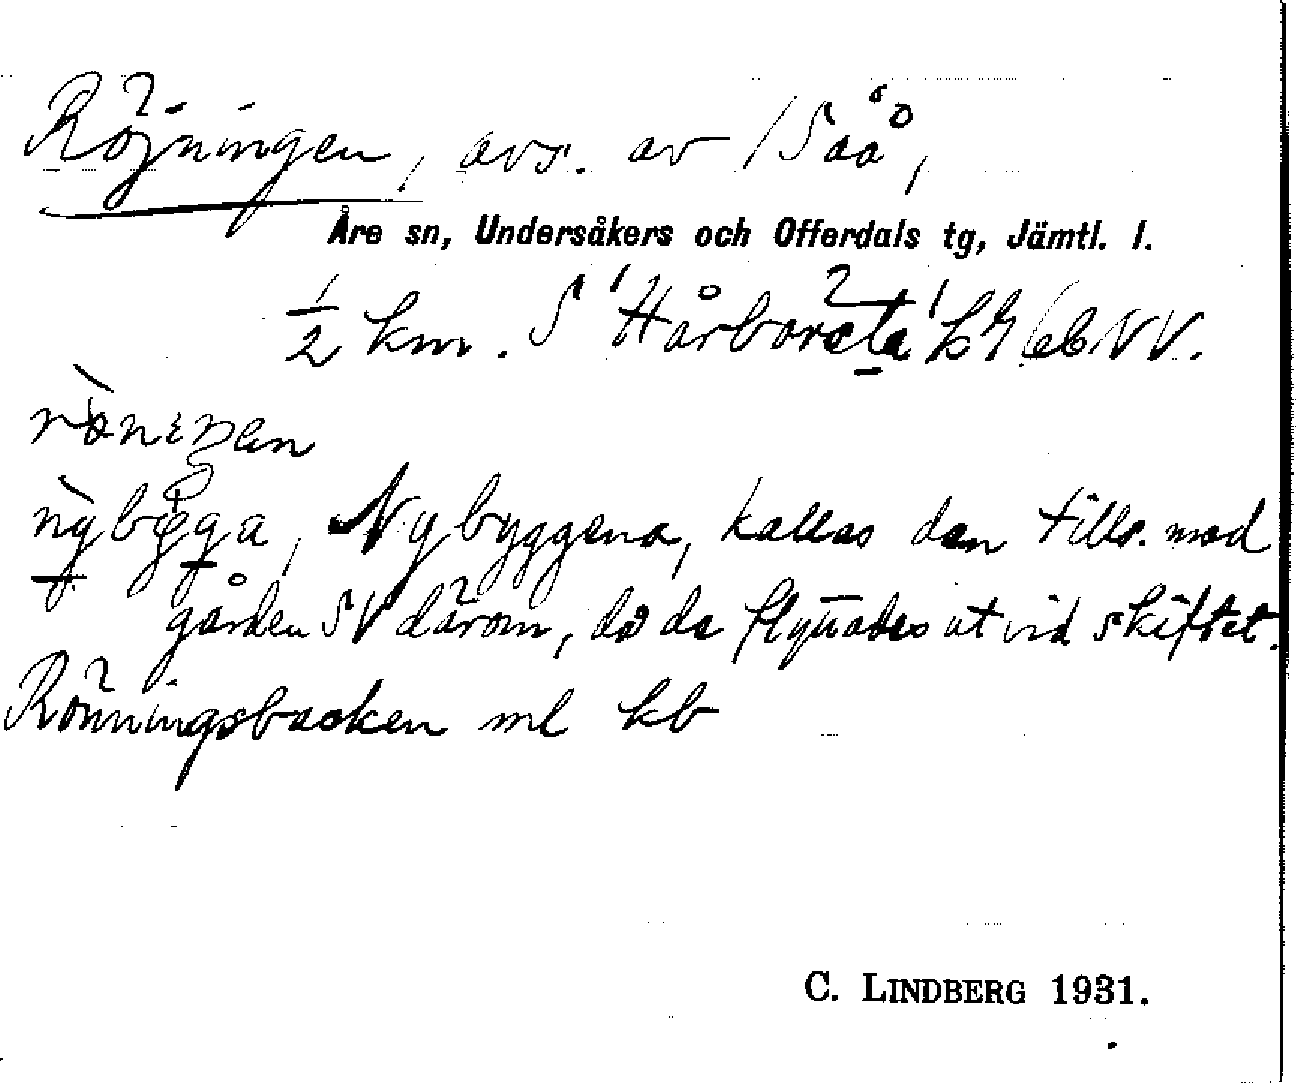 Röjningen, avs. av 1 Såå,
Åre sn, Undersåkers och Offerdals tg, Jämtl. l.
½ km. S
nybygga, Nybyggena, kallas den tills. med
gården SV därom, då de flyttades ut vid skiftet.
Rönningsbacken ml kb
C. LINDBERG 1931.